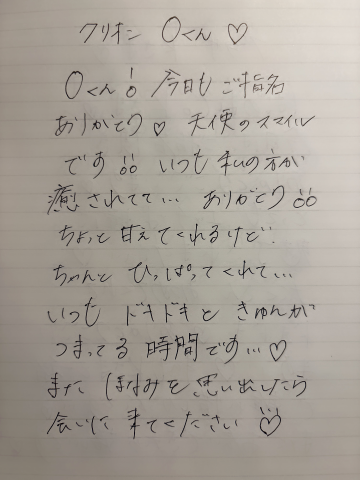 クリオン Oくん ♡
Oくん!! 今日も ご指名
ありがとう♡ 天使のスマイル
です!! いつも 私の方が
癒されてて… ありがとう!!
ちょっと 甘えてくれるけど
ちゃんと ひっぱってくれて…
いつも ドキドキと きゅんが
つまってる 時間です…♡
また ほなみを 思い出したら
会いに 来てください♡